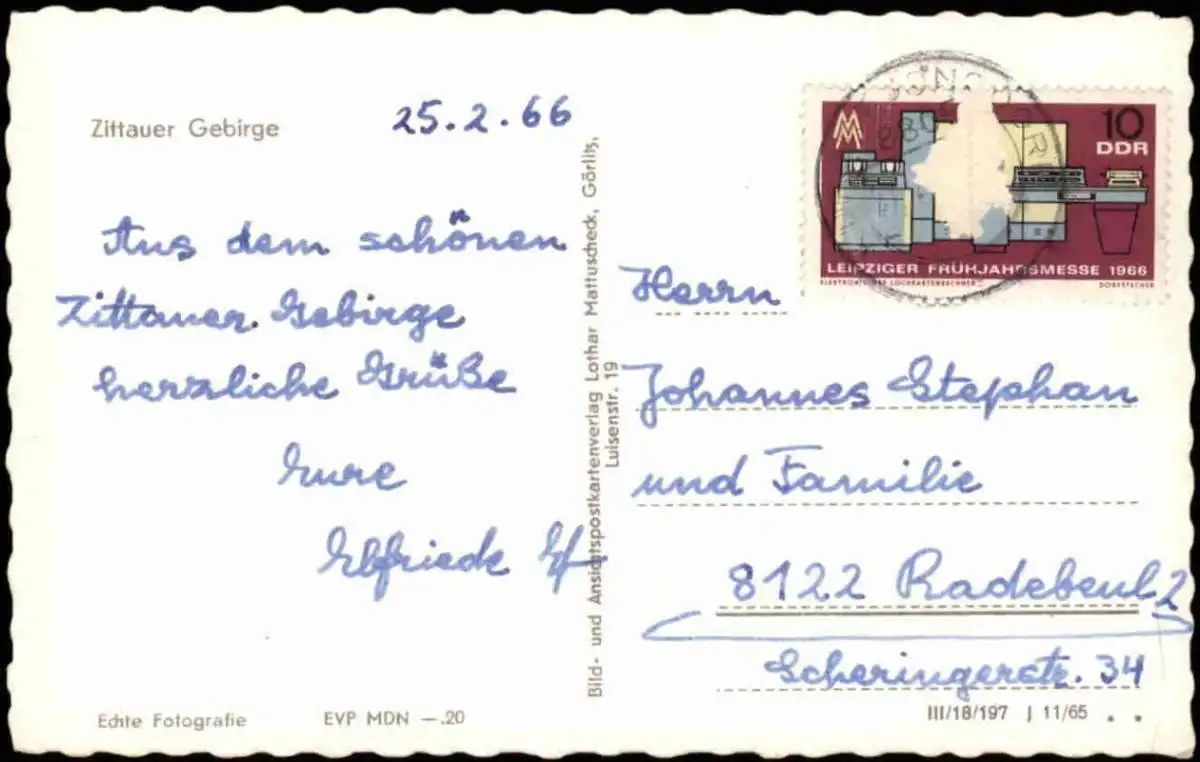 Zittauer Gebirge
25.2.66
Aus dem schönen
Zittauer Gebirge
herzliche Grüße
Eure
Elfriede
Echte Fotografie
EVP MDN —.20
Bild- und Ansichtspostkartenverlag Lothar Mattuscheck, Görlitz,
Luisenstr. 19
10
DDR
LEIPZIGER FRÜHJAHRSMESSE 1966
ELEKTRONISCHER LOCHKARTENRECHNER
DORFSTECHER
Herrn
Johannes Stephan
und Familie
8122 Radebeul 2
Scharingerstr. 34
III/18/197 J 11/65